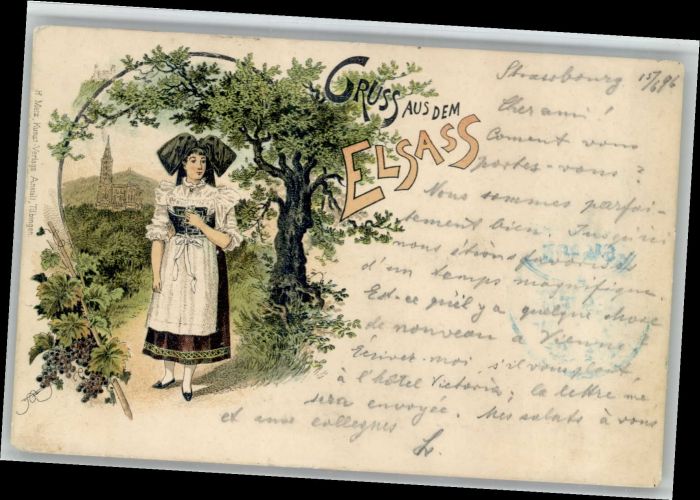 GRUSS AUS DEM
ELSASS
Strassbourg 15/6 96
Cher ami!
Coment vous
portez-vous?
Nous sommes parfai-
tement bien. Jusqu'ici
nous étions favorisés
d'un temps magnifique.
Est-ce qu'il y a quelque chose
de nouveau à Vienne?
Écrivez-moi, s'il vous plait,
à l'hôtel Victoria; la lettre me
sera envoyée. Mes saluts à vous
et aux collegues
H. Metz, Kunst-Verlags-Anstalt, Tübingen